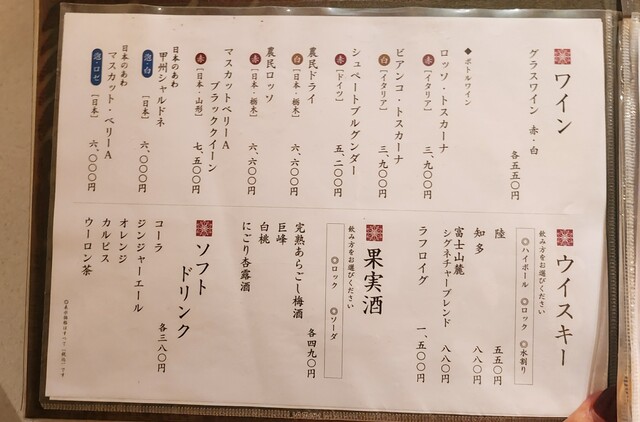 ワイン
グラスワイン 赤・白
各五五〇円
◆ボトルワイン
赤 ロッソ・トスカーナ
[イタリア] 三、九〇〇円
白 ビアンコ・トスカーナ
[イタリア] 三、九〇〇円
赤 シュペートブルグンダー
[ドイツ] 五、二〇〇円
白 農民ドライ
[日本・栃木] 六、六〇〇円
赤 農民ロッソ
[日本・栃木] 六、六〇〇円
赤 マスカットベリーA
ブラッククイーン
[日本・山形] 七、五〇〇円
日本のあわ
泡・白 甲州シャルドネ
[日本] 六、〇〇〇円
日本のあわ
泡・ロゼ マスカット・ベリーA
[日本] 六、〇〇〇円
ウイスキー
飲み方をお選びください
◎ハイボール ◎ロック ◎水割り
陸 五五〇円
知多 八八〇円
富士山麓
シグネチャーブレンド 八八〇円
ラフロイグ 一、五〇〇円
果実酒
飲み方をお選びください
◎ロック ◎ソーダ
完熟あらごし梅酒
巨峰
白桃
にごり杏露酒
各四九〇円
ソフト
ドリンク
コーラ
ジンジャーエール
オレンジ
カルピス
ウーロン茶
各三八〇円
◎表示価格はすべて(税込)です。